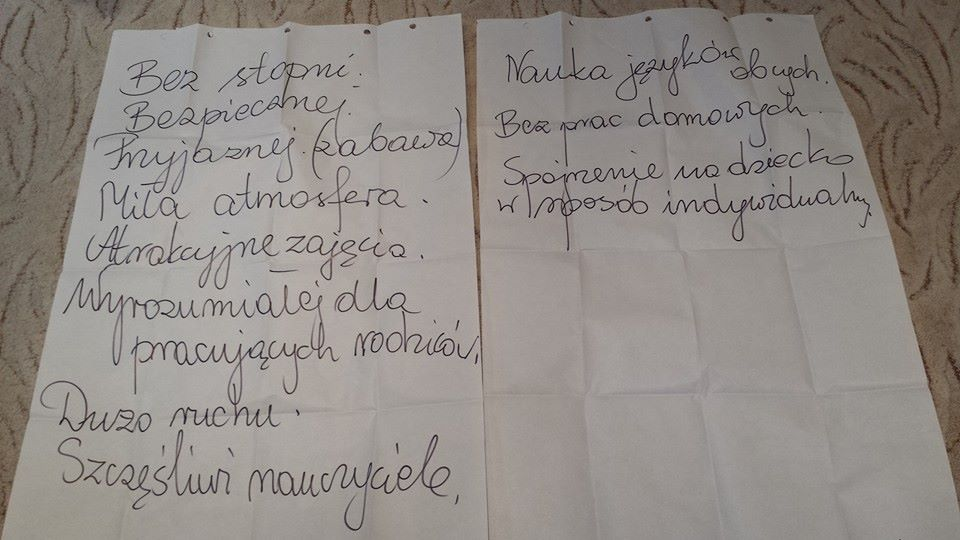 Bez stopni.
Bezpiecznej.
Przyjaznej. (zabawa)
Miła atmosfera.
Atrakcyjne zajęcia.
Wyrozumiałej dla
pracujących rodziców.
Dużo ruchu.
Szczęśliwi nauczyciele,
Nauka języków
obcych.
Bez prac domowych.
Spojrzenie na dziecko
w sposób indywidualny.